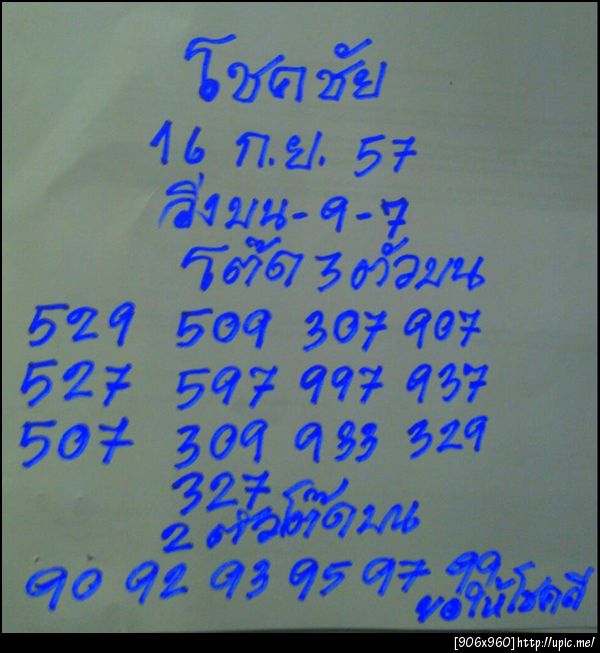 โชคชัย
16 ก.ย. 57
วิ่งบน-9-7
โต๊ด 3 ตัวบน
529 509 307 907
527 597 997 937
507 309 933 329
327
2 ตัวโต๊ดบน
90 92 93 95 97 99
ขอให้โชคดี
[906x960]http://upic.me/